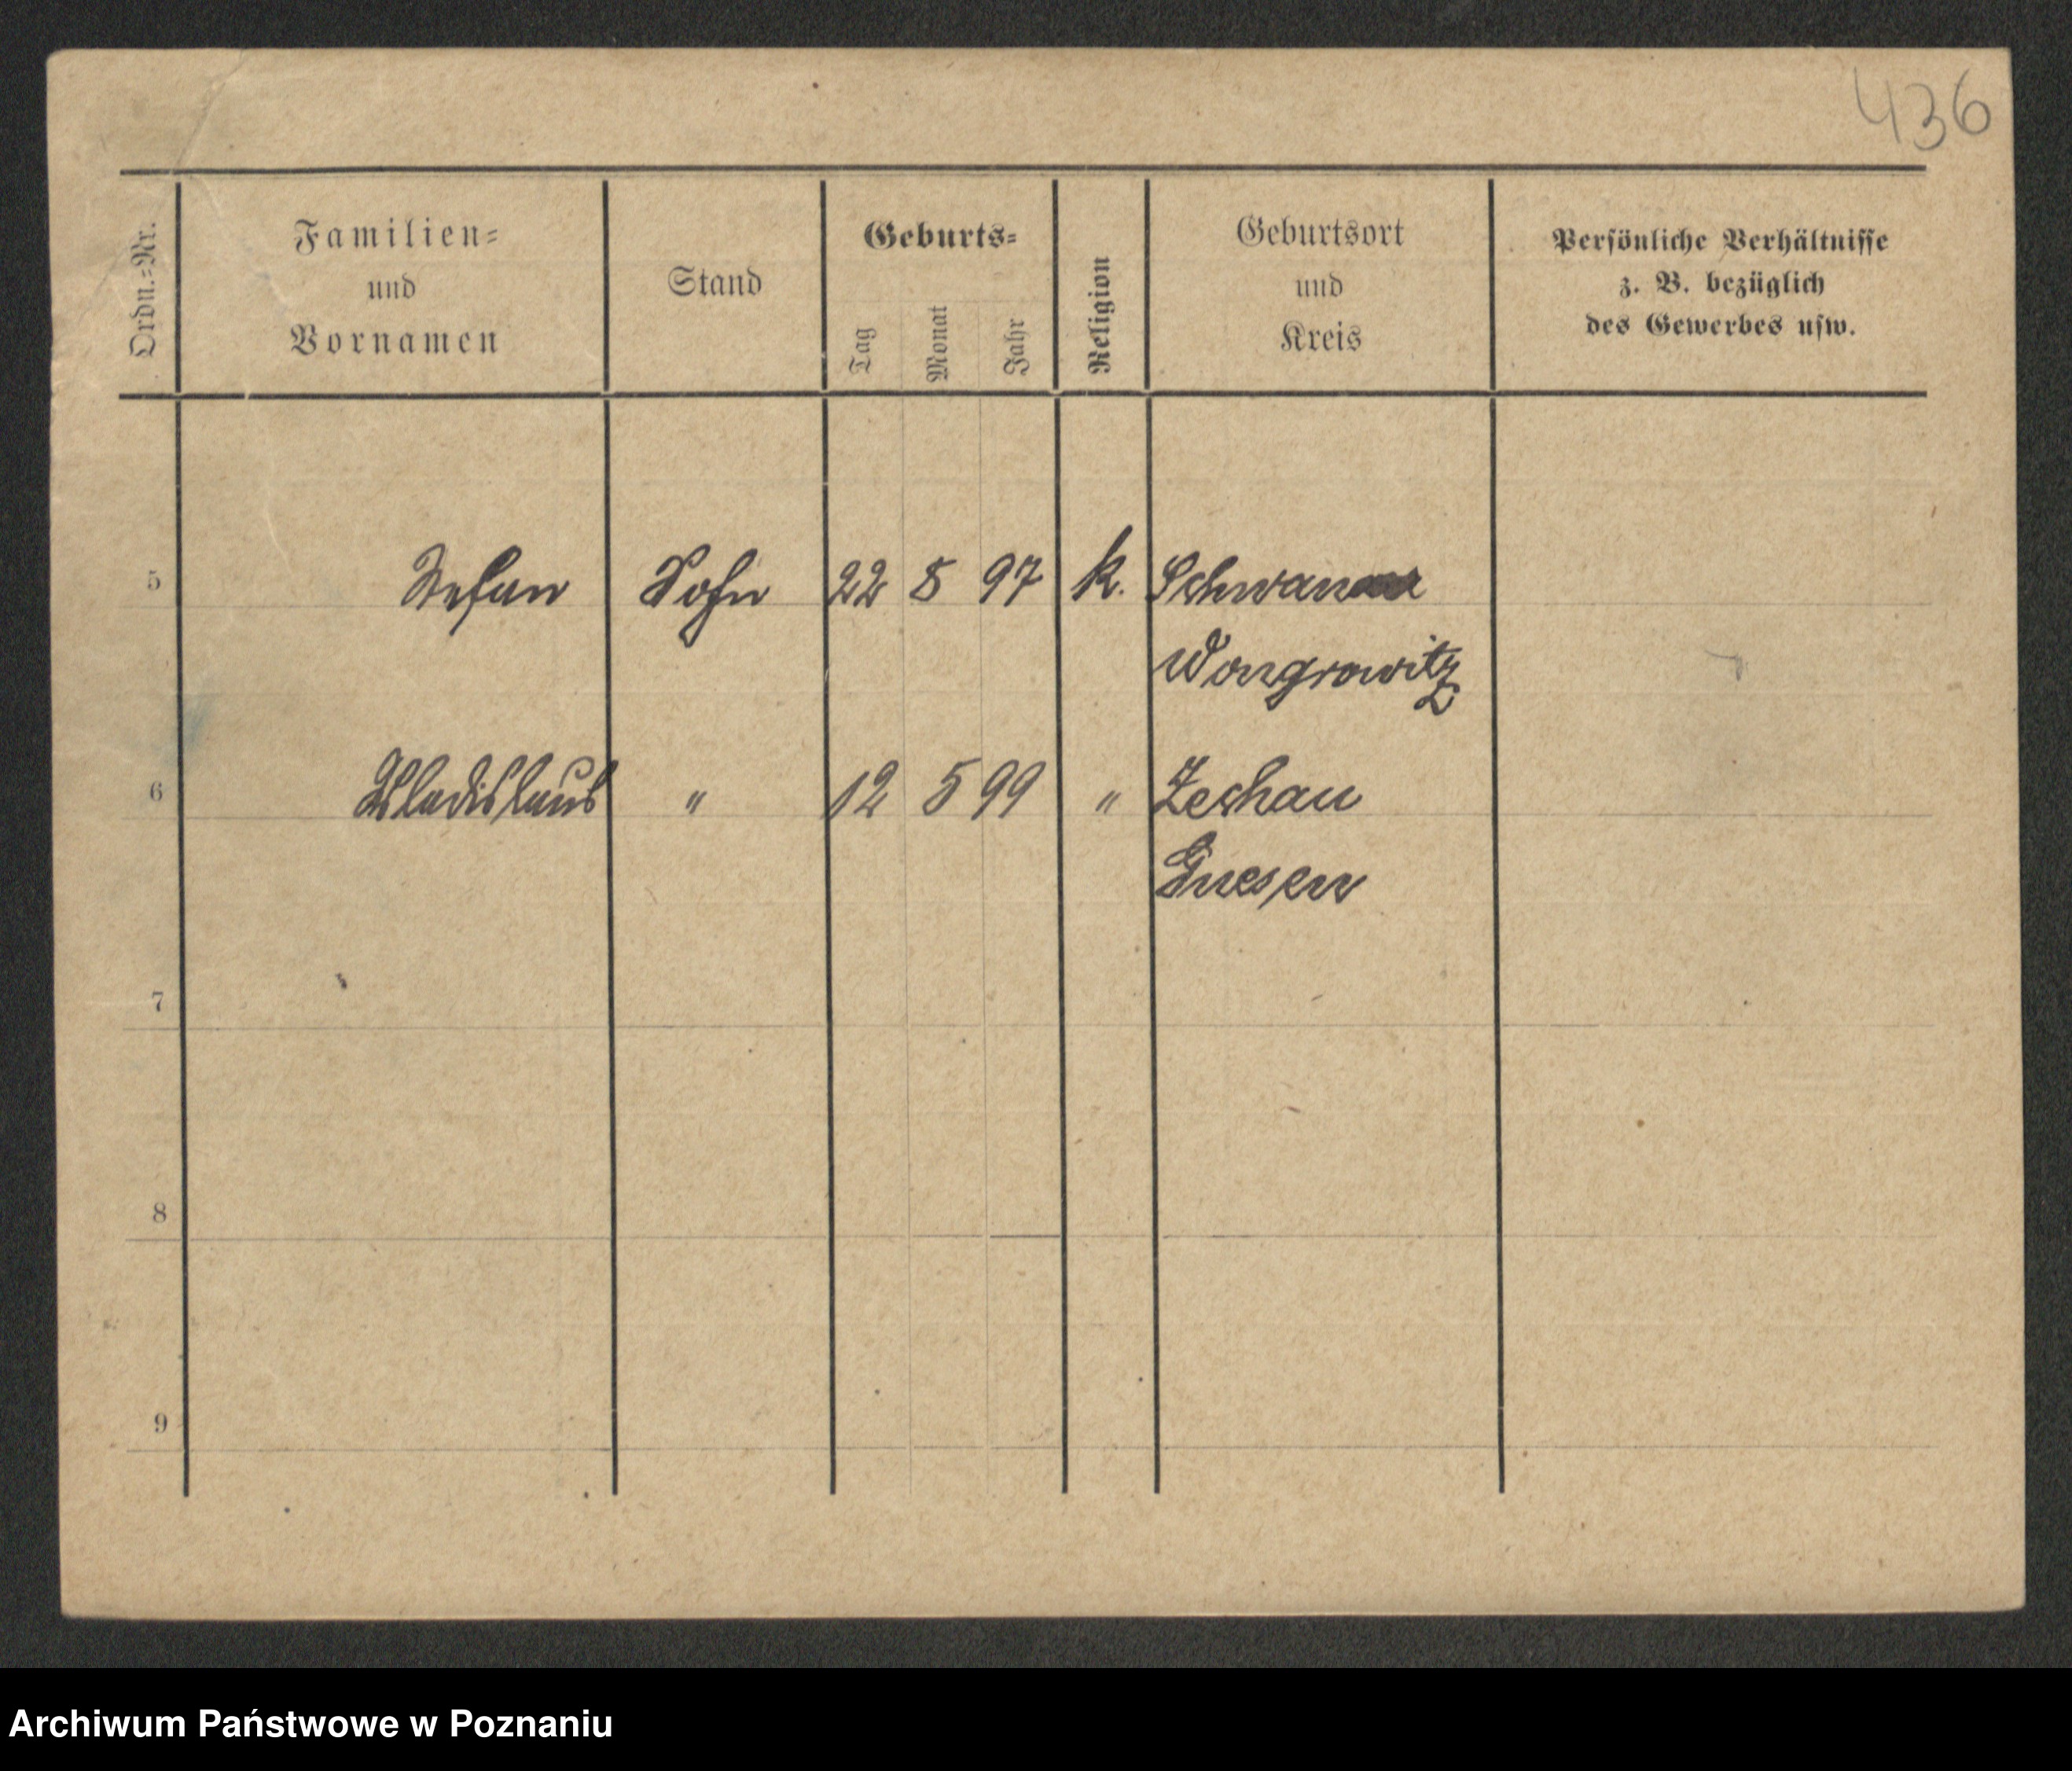 436
Ordn.=Nr.
Familien=
und
Vornamen
Stand
Geburts=
Tag
Monat
Jahr
Religion
Geburtsort
und
Kreis
Persönliche Verhältnisse
z. B. bezüglich
des Gewerbes usw.
5 Stefan Sohn 22 8 97 k.
Wongrowitz
6 Wladislaus " 12 5 99 " Zechau
Gnesen
7
8
9
Archiwum Państwowe w Poznaniu